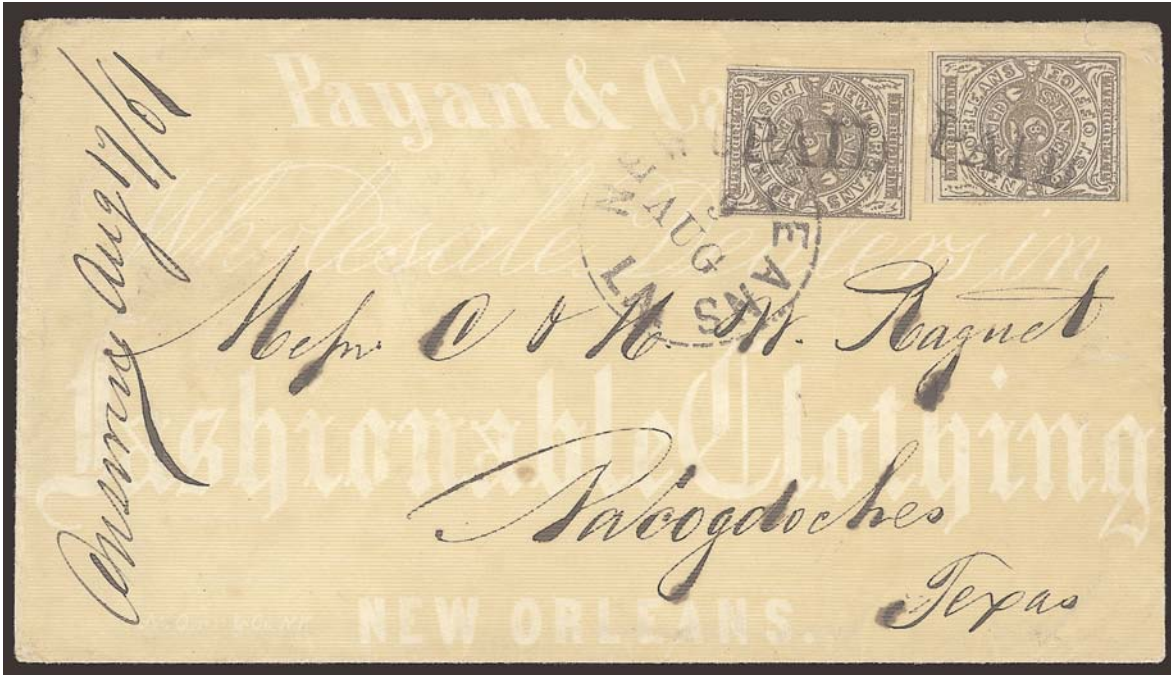 Payan & Ca
Wholesale Dealers in
Fashionable Clothing
NEW ORLEANS.
NEW ORLEANS POST OFFICE
NEW ORLEANS POST OFFICE
PAID
PAID
ORLEANS
LA
AUG
Answered Aug 17/61
Messrs. C & H. W. Raguet
Nacogdoches
Texas